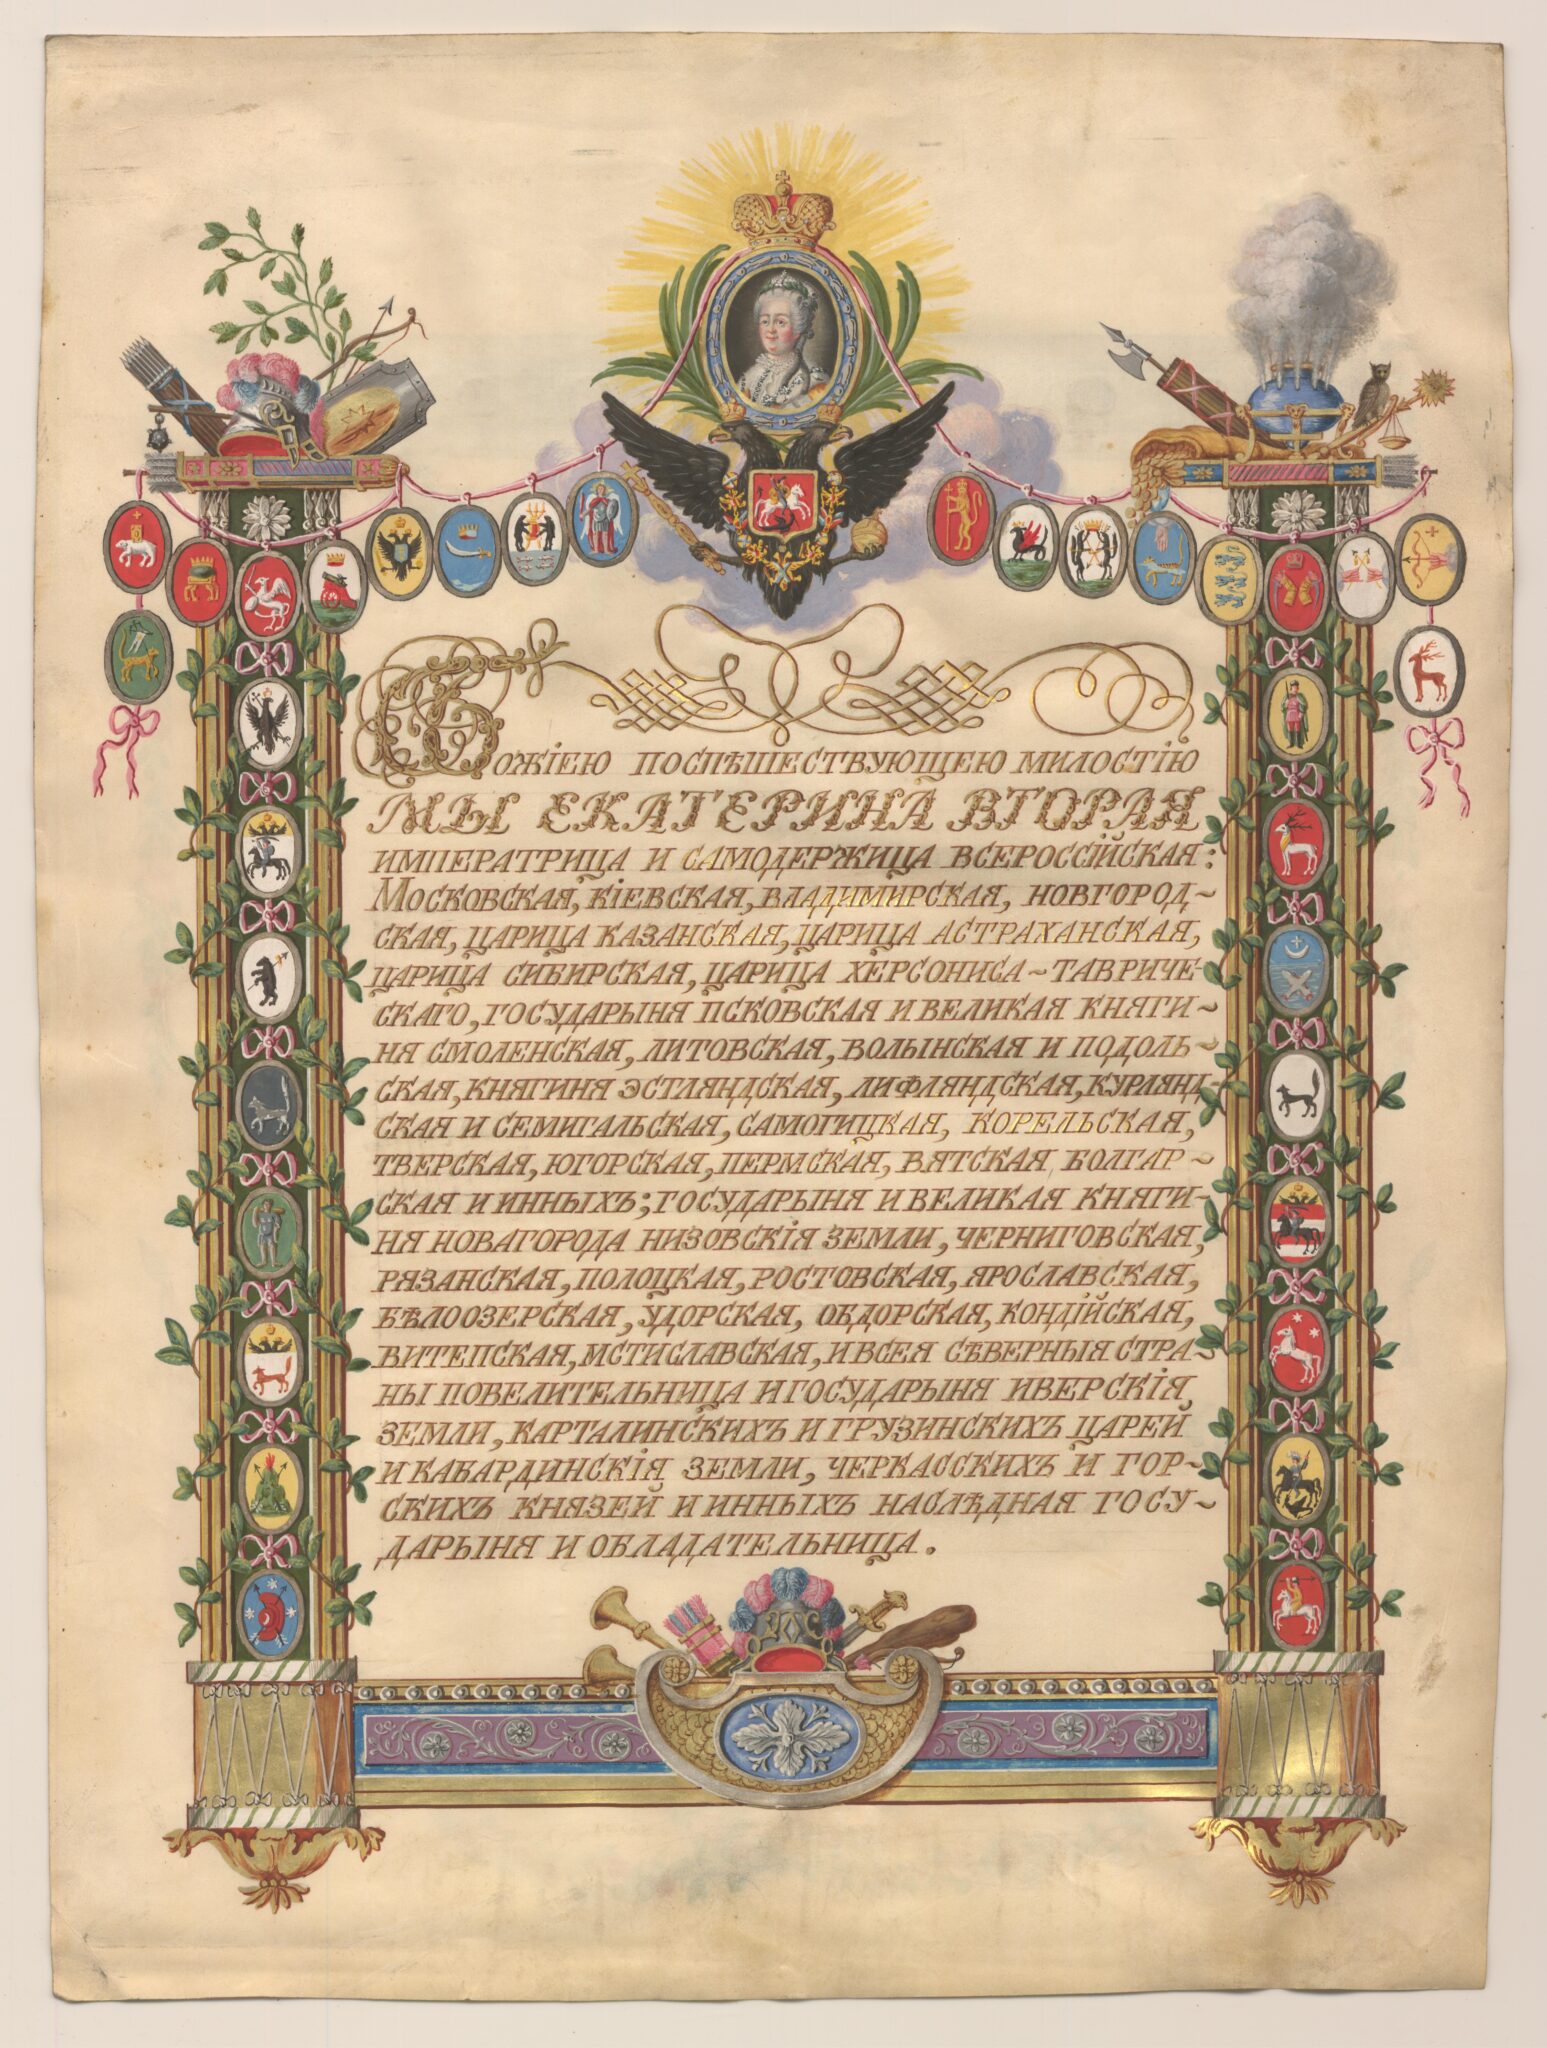 Божіею поспѣшествующею милостію
Мы Екатерина Вторая
императрица и самодержица всероссійская:
Московская, кіевская, владимирская, новгород~
ская, царица казанская, царица астраханская,
царица сибирская, царица херсониса~тавриче-
скаго, государыня псковская и великая княги-
ня смоленская, литовская, волынская и подоль-
ская, княгиня эстляндская, лифляндская, курлянд-
ская и семигальская, самогицкая, корельская,
тверская, югорская, пермская, вятская болгар~
ская и инныхъ; государыня и великая княги-
ня новагорода низовскія земли, черниговская,
рязанская, полоцкая, ростовская, ярославская,
бѣлоозерская, удорская, обдорская, кондійская,
витепская, мстиславская, и всея сѣверныя стра~
ны повелительница и государыня иверскія
земли, карталинскихъ и грузинскихъ царей
и кабардинскія земли, черкасскихъ и гор-
скихъ князей и инныхъ наслѣдная госу~
дарыня и обладательница.